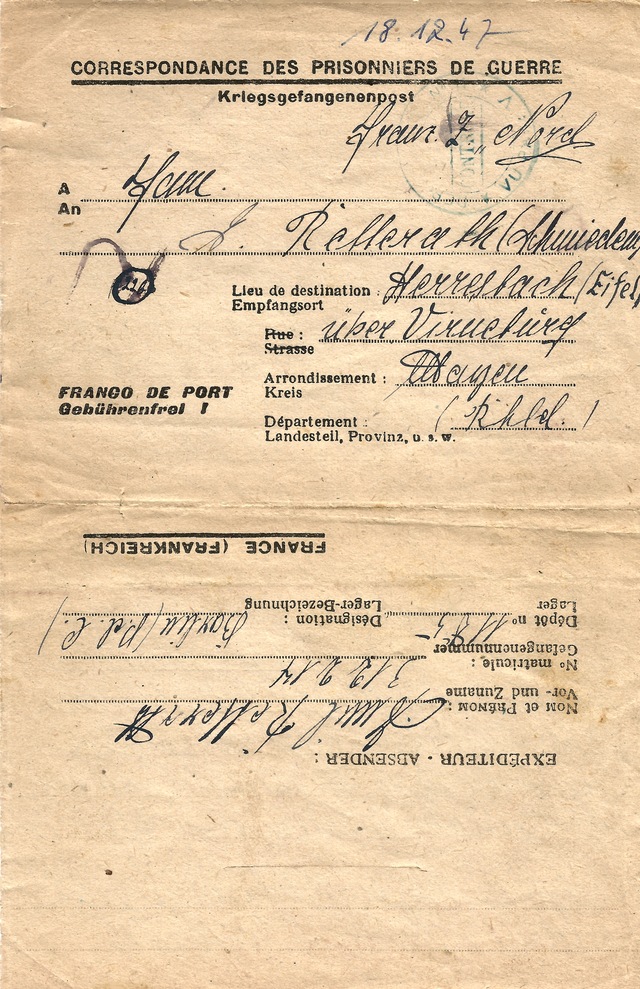 18.12.47
CORRESPONDANCE DES PRISONNIERS DE GUERRE
Kriegsgefangenenpost
franz. Z. „Nord
A
An
Fam.
Retterath (Schmiede
Lieu de destination :
Empfangsort
Herresbach (Eifel
Rue :
Strasse
über Virneburg
FRANCO DE PORT
Gebührenfrei !
Arrondissement :
Kreis
Mayen
Département :
Landesteil, Provinz, u. s. w.
( Rhld. )
EXPÉDITEUR - ABSENDER :
NOM et PRÉNOM :
Vor- und Zuname
Retterath
N° matricule :
Gefangenennummer
312 214
Dépôt n°
Lager
Désignation :
Lager-Bezeichnung
Barlin (P.d.C.)
FRANCE (FRANKREICH)